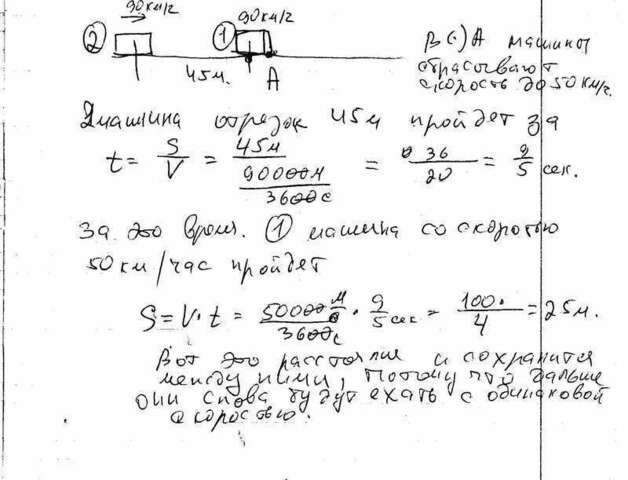 90км/г 90км/г
② ① В (·) А машины
45м. А сбрасывают
скорость до 50 км/г.
2машина отрезок 45м пройдет за
t = S/V = 45м/(90000м/3600с) = 36/20 = 9/5 сек.
За это время. ① машина со скоростью
50 км/час пройдет
S = V·t = 50000м/3600с · 9/5 сек = 100·/4 = 25м.
Вот это расстояние и сохранится
между ними, потому что дальше
они снова будут ехать с одинаковой
скоростью.